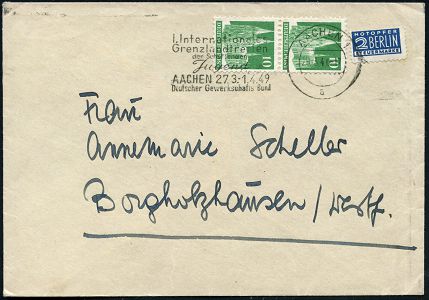 I. Internationales
Grenzlandtreffen
der Schaffenden
Jugend
AACHEN 27.3.-1.4.49
Deutscher Gewerkschafts Bund
10
10
AACHEN
NOTOPFER
2 BERLIN
STEUERMARKE
Frau
Annemarie Scheller
Borgholzhausen / Westf.